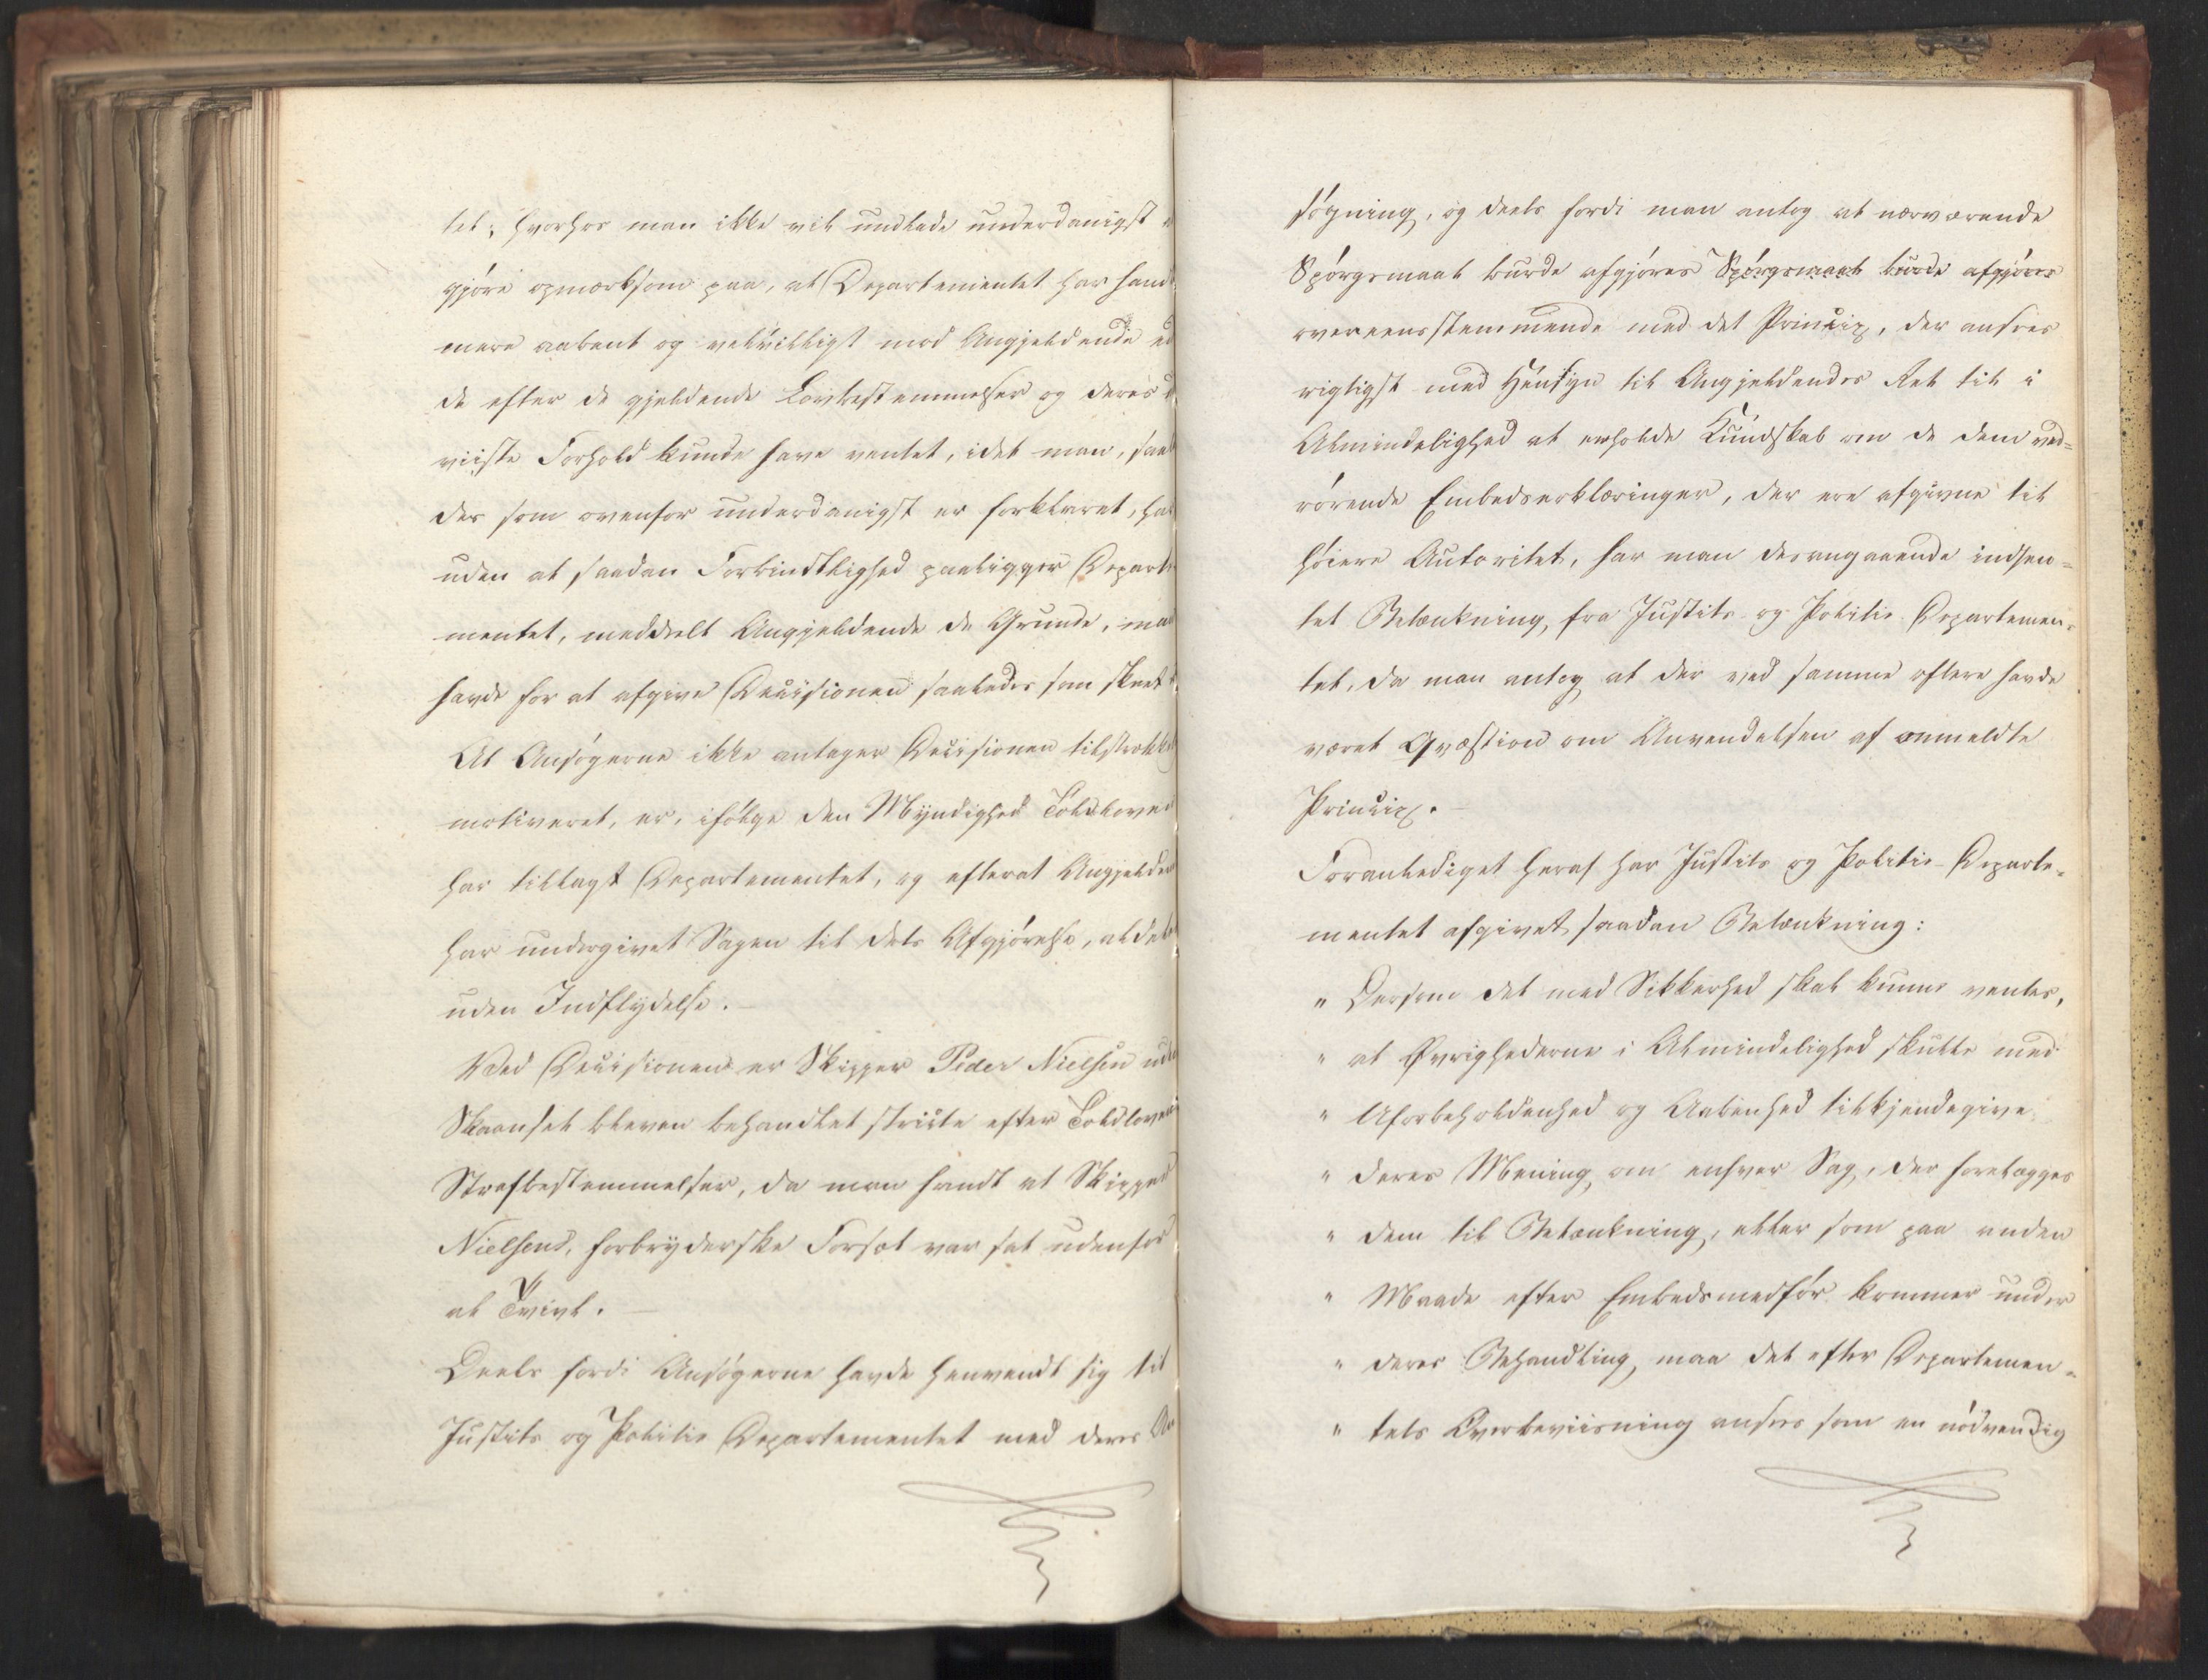 tet; hvorhos man ikke vil undlade underdanigst
gjøre opmærksom paa, at Departementet har hand
mere aabent og velvilligt mod Angjeldende
de efter de gjeldende Lovbestemmelser og deres
viiste Forhold kunde have ventet, idet man, saal
des som ovenfor underdanigst er forklaret, har
uden at saadan Forbindtlighed paaligger Departe
mentet, meddeelt Angjeldende de Grunde, man
havde for at afgive Decisionen saaledes som skeet
At Ansøgerne ikke antager Decisionen tilstrækkel
motiveret, er, ifølge den Myndighed Toldloven
har tillagt Departementet, og efterat Angjelden
har undergivet Sagen til dets Afgjørelse, aldel
uden Indflydelse. —
Ved Decisionen er Skipper Peder Nielsen
Skaansel bleven behandlet stricte efter Toldloven
Strafbestemmelser, da man fandt at Skipper
Nielsens, forbryderske Forsæt var sat udenfor
al Tvivl. —
Deels fordi Ansøgerne havde henvendt sig til
Justits og Politie Departementet med deres An
søgning, og deels fordi man antog at nærværende
Spørgsmaal burde afgjøres Spørgsmaal burde afgjøres
overeensstemmende med det Princip, der ansees
rigtigst med Hensyn til Angjeldendes Ret til i
Almindelighed at erholde Kundskab om de dem ved=
rørende Embedserklæringer, der ere afgivne til
høiere Autoritet, har man desangaaende indhen=
tet Betænkning, fra Justits- og Politie Departemen=
tet, da man antog at der ved samme oftere havde
været Qvæstion om Anvendelsen af anmeldte
Princip. —
Foranlediget heraf har Justits og Politie-Departe=
mentet afgivet saadan Betænkning:
" Dersom det med Sikkerhed skal kunne ventes,
" at Øvrighederne i Almindelighed skulle med
" Uforbeholdenhed og Aabenhed tilkjendegive
" deres Mening om enhver Sag, der forelægges
" dem til Betænkning, eller som paa anden
" Maade efter Embedsmedfør kommer under
" deres Behandling, maa det efter Departemen=
" tets Overbeviisning ansees som en nødvendig